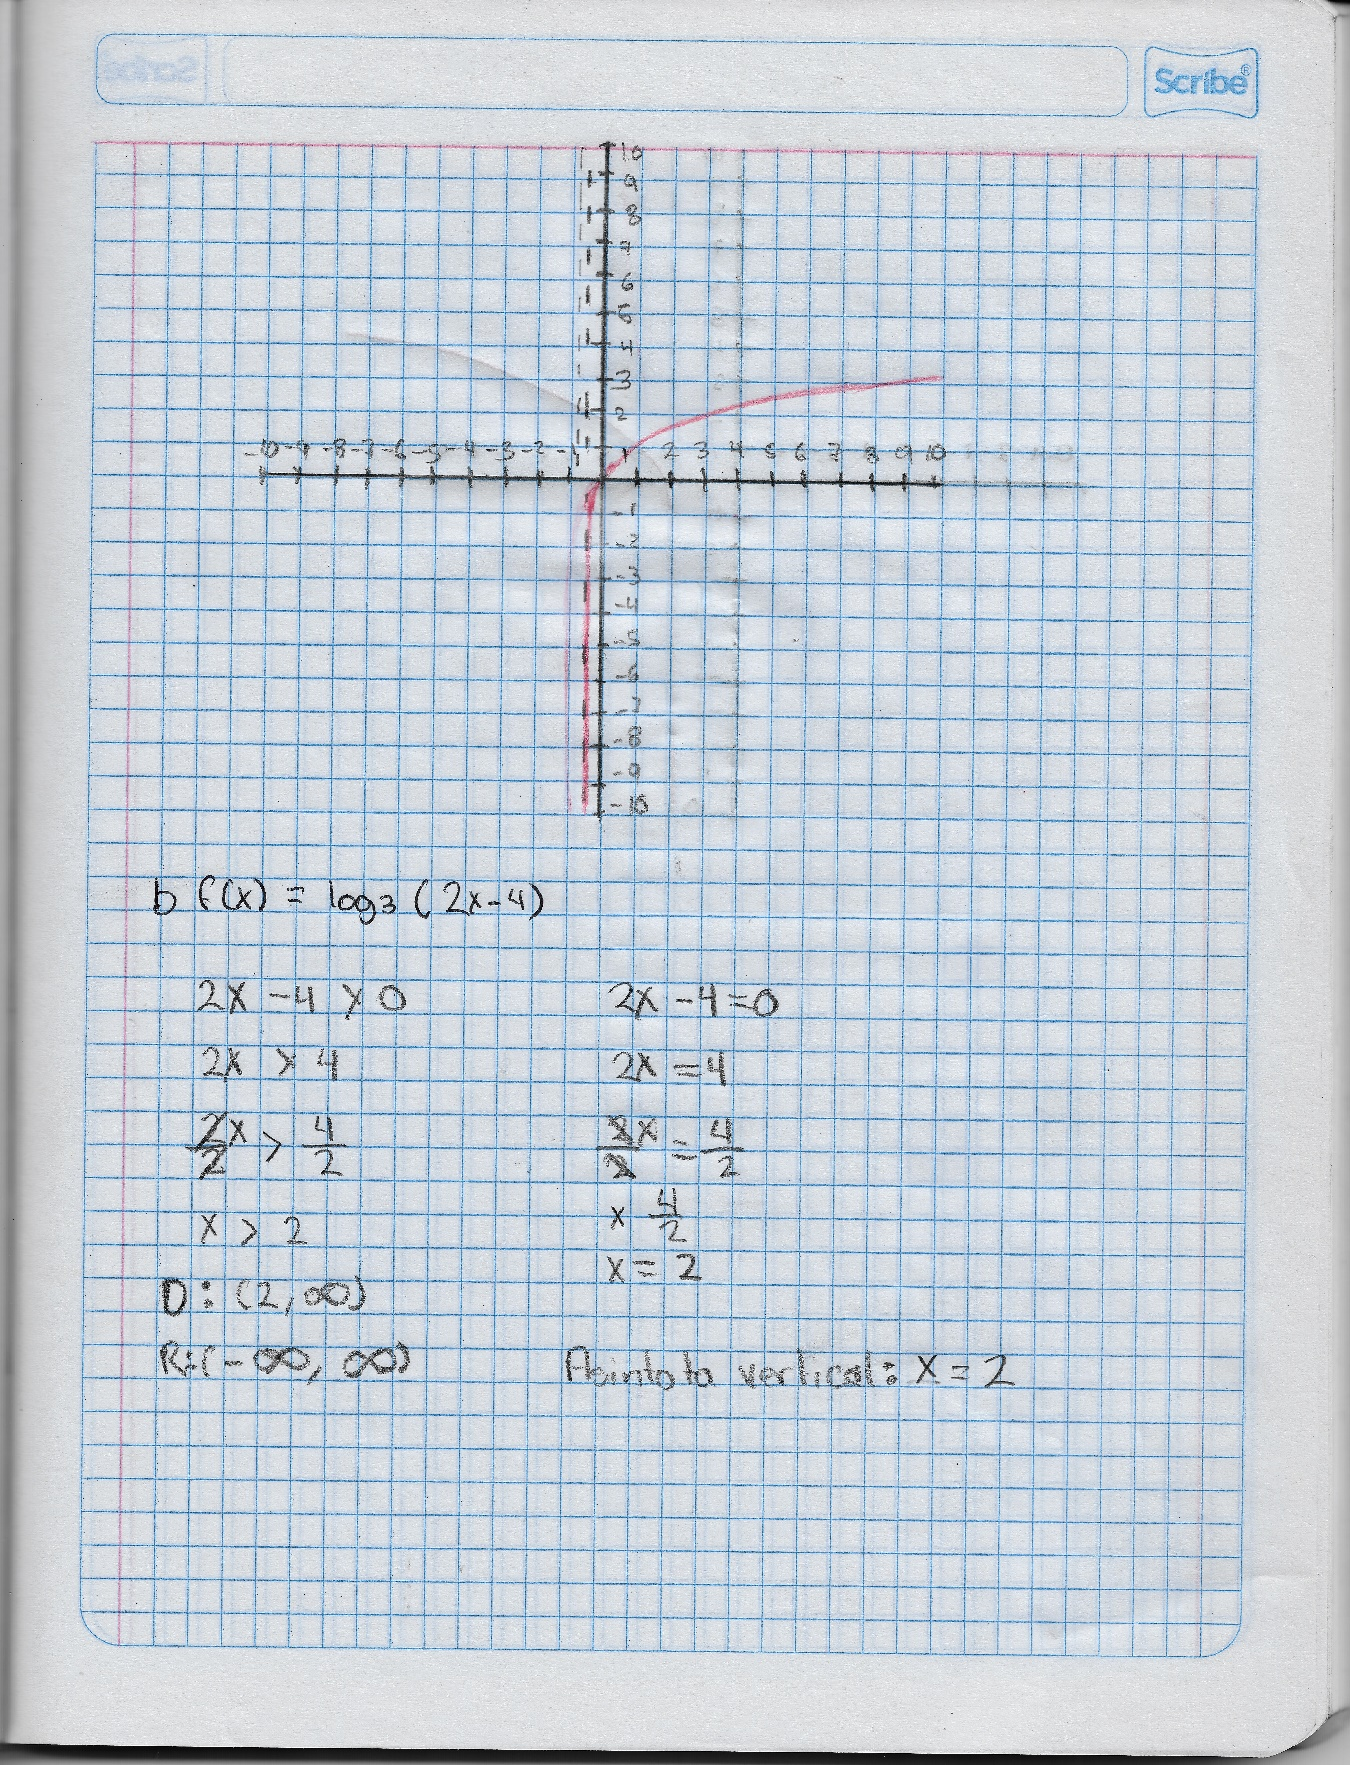 Scribe®
10
9
8
7
6
5
4
3
2
-10 -9 -8 -7 -6 -5 -4 -3 -2 -1 1 2 3 4 5 6 7 8 9 10
-1
-2
-3
-4
-5
-6
-7
-8
-9
-10
b f(x) = log3 (2x-4)
2x - 4 > 0 2x - 4 = 0
2x > 4 2x = 4
2x/2 > 4/2 2x/2 = 4/2
x 4/2
x > 2
x = 2
D: (2, ∞)
R: (-∞, ∞) Asintota vertical: x = 2